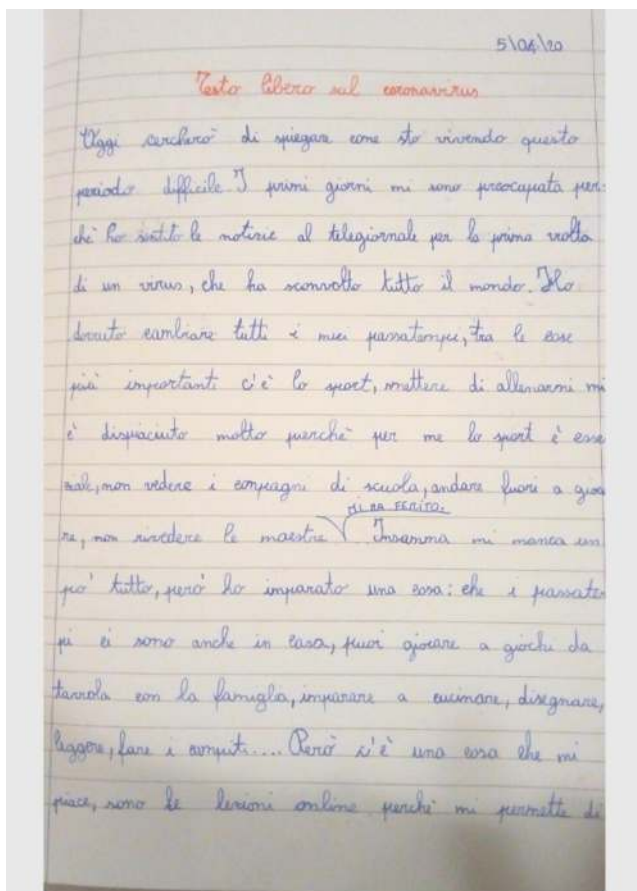 5/04/20
Testo libero sul coronavirus
Oggi cercherò di spiegare come sto vivendo questo
periodo difficile. I primi giorni mi sono preocupata per-
chè ho sentito le notizie al telegiornale per la prima volta
di un virus, che ha sconvolto tutto il mondo. Ho
dovuto cambiare tutti i miei passatempi, tra le cose
più importanti c'è lo sport, smettere di allenarmi mi
è dispiaciuto molto perchè per me lo sport è esse
ziale, non vedere i compagni di scuola, andare fuori a gioca
re, non rivedere le maestre MI HA FERITO. Insomma mi manca un
po' tutto, però ho imparato una cosa: che i passate
pi ci sono anche in casa, puoi giocare a giochi da
tavola con la famiglia, imparare a cucinare, disegnare,
leggere, fare i compiti.... Però c'è una cosa che mi
piace, sono le lezioni online perchè mi permette di